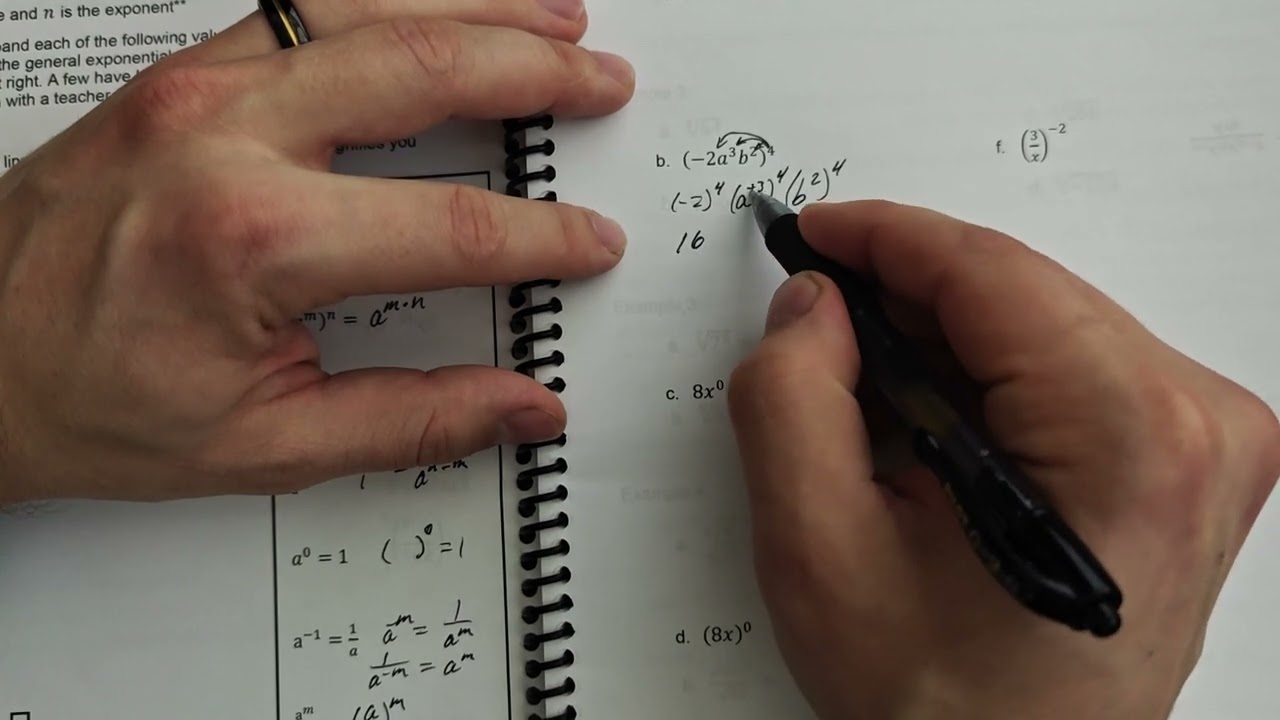 e and n is the exponent**
and each of the following
the general exponential
right. A few have
with a teacher
you
m)ⁿ = a^(m·n)
a^(n-m)
a⁰ = 1 ( )⁰ = 1
a⁻¹ = 1/a a⁻ᵐ = 1/aᵐ
1/a⁻ᵐ = aᵐ
aᵐ (a)ᵐ
b. (−2a³b²)⁴
(-2)⁴ (a⁺³)⁴ (b²)⁴
16
c. 8x⁰
d. (8x)⁰
f. (3/x)⁻²